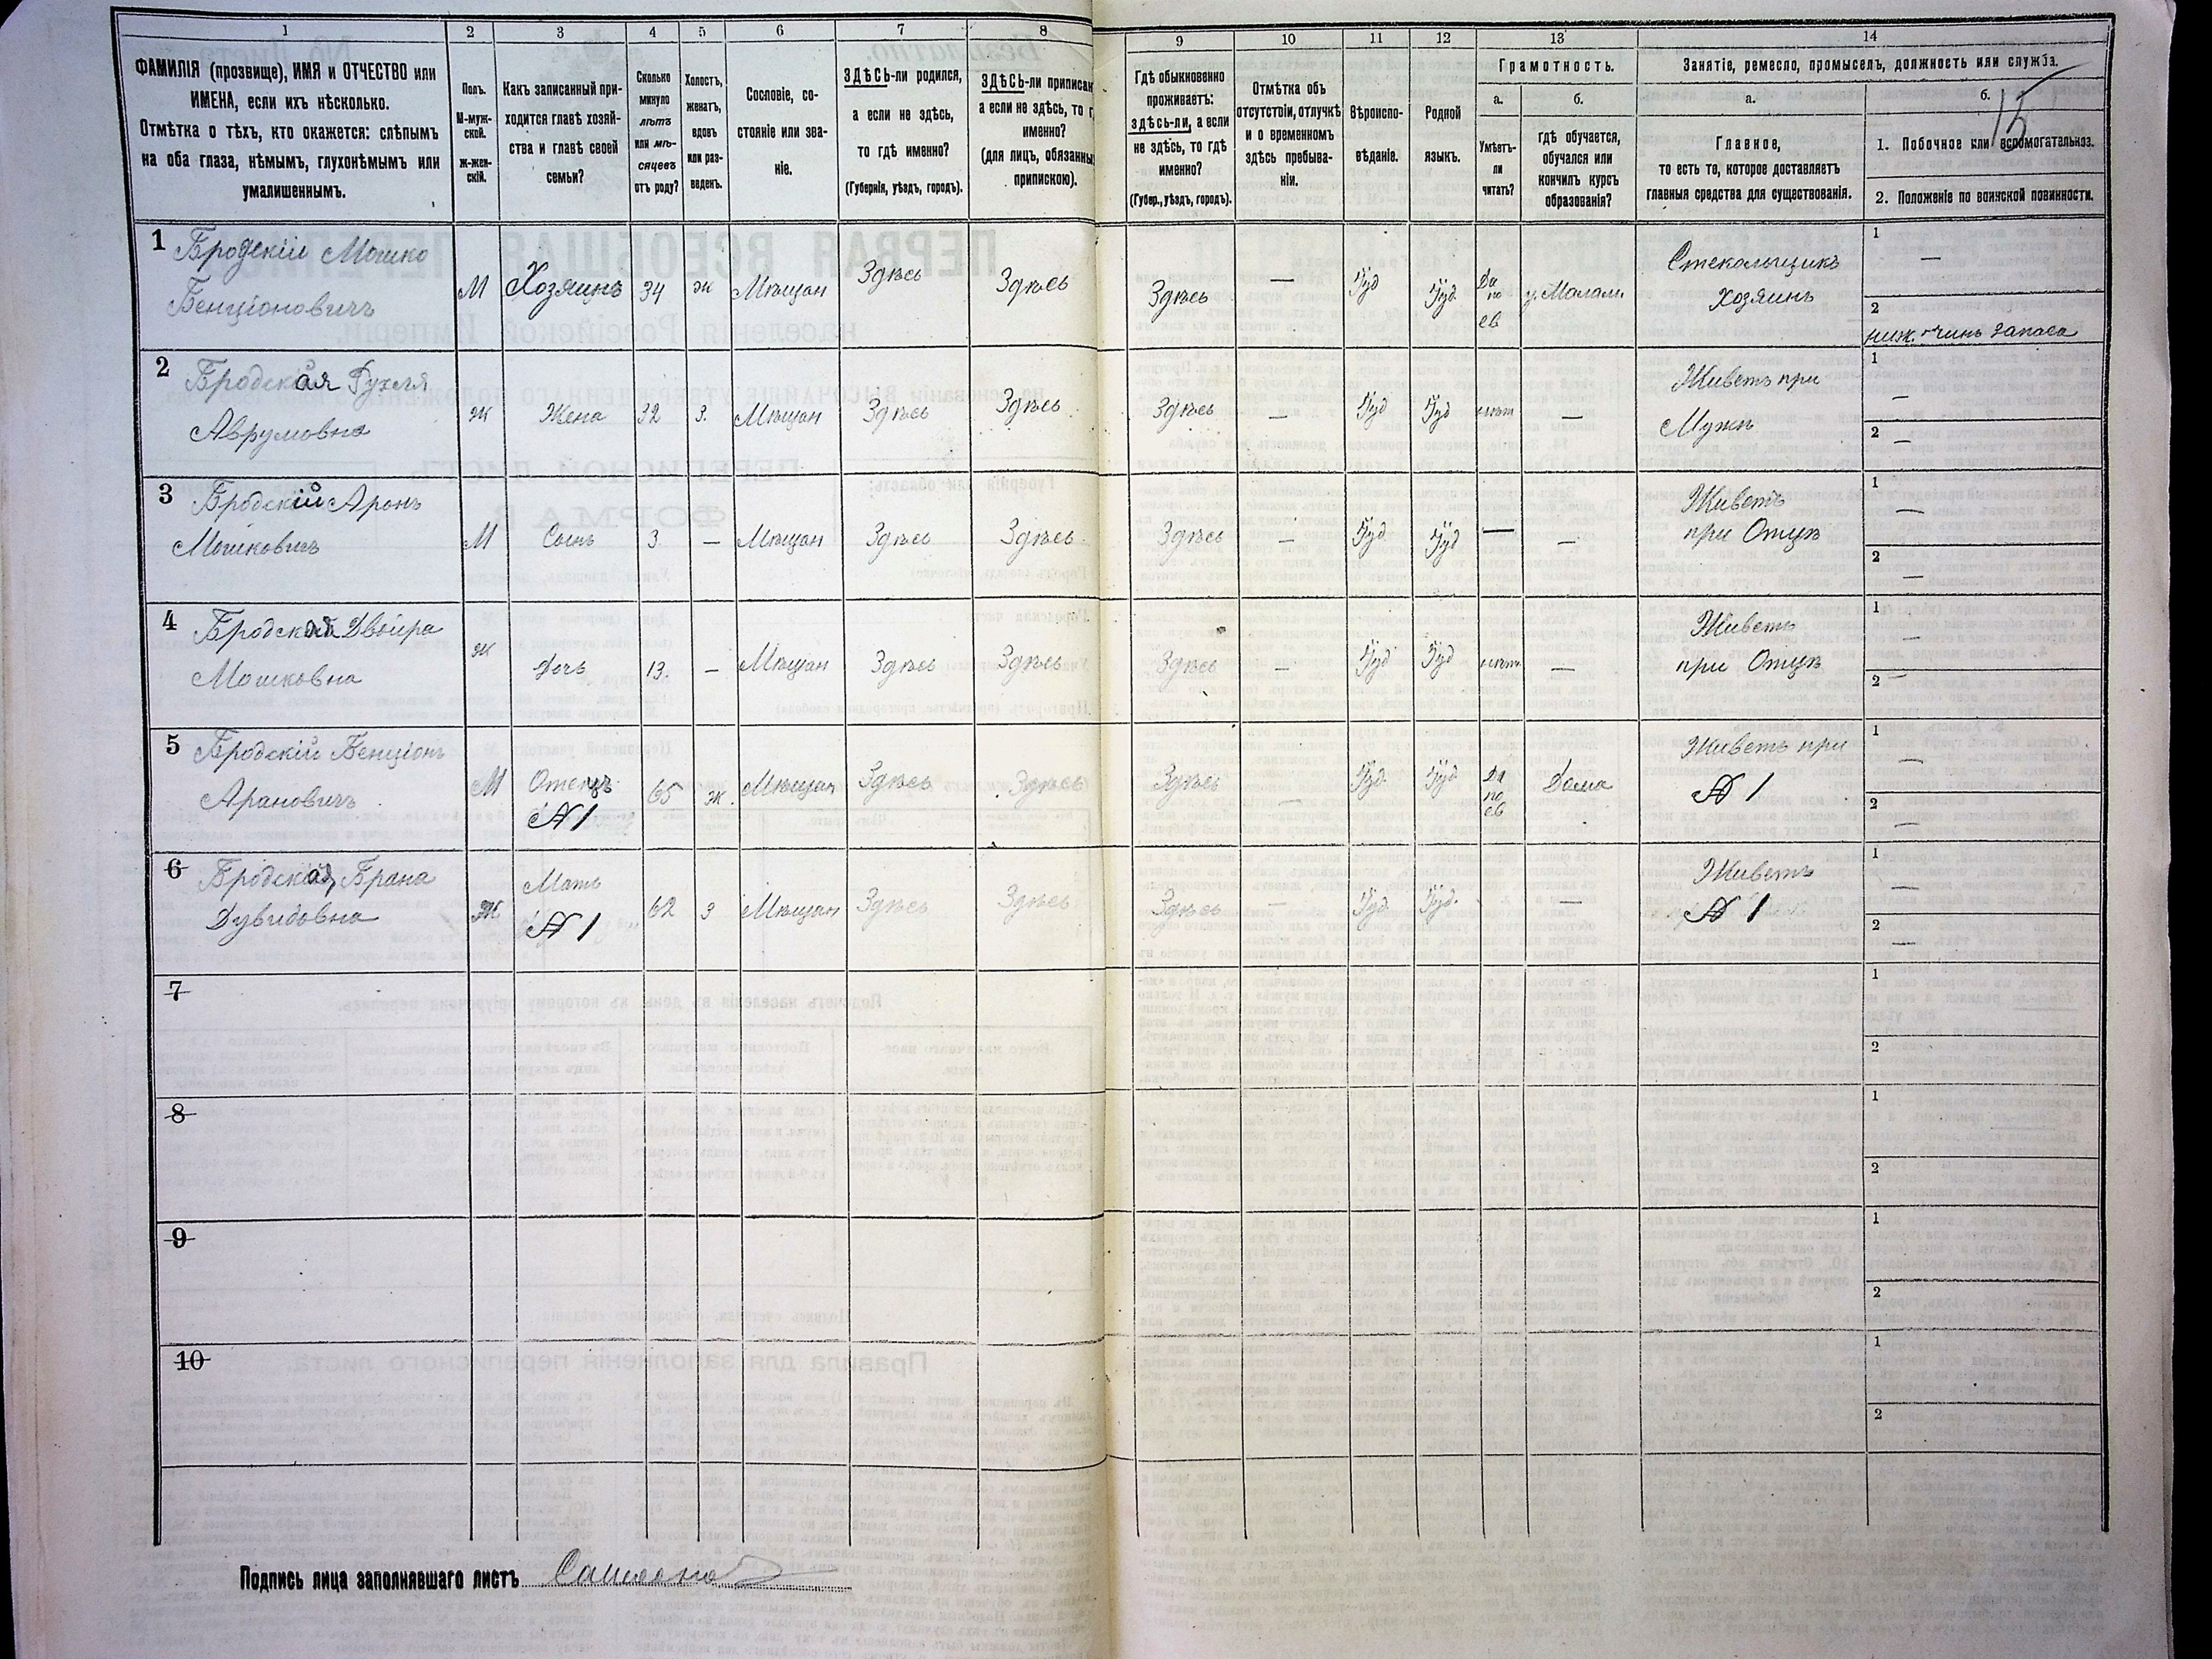 1 2 3 4 5 6 7 8 9 10 11 12 13 14
ФАМИЛІЯ (прозвище), ИМЯ и ОТЧЕСТВО или
ИМЕНА, если ихъ нѣсколько.
Отмѣтка о тѣхъ, кто окажется: слѣпымъ
на оба глаза, нѣмымъ, глухонѣмымъ или
умалишеннымъ.
Полъ.
М-муж-
ской.
ж-жен-
скій.
Какъ записанный при-
ходится главѣ хозяй-
ства и главѣ своей
семьи?
Сколько
минуло
лѣтъ
или мѣ-
сяцевъ
отъ роду?
Холостъ,
женатъ,
вдовъ
или раз-
веденъ.
Сословіе, со-
стояніе или зва-
ніе.
ЗДѢСЬ-ли родился,
а если не здѣсь,
то гдѣ именно?
(Губернія, уѣздъ, городъ).
ЗДѢСЬ-ли приписан
а если не здѣсь, то г
именно?
(для лицъ, обязанны
припискою).
Гдѣ обыкновенно
проживаетъ:
здѣсь-ли, а если
не здѣсь, то гдѣ
именно?
(Губер., уѣздъ, городъ).
Отмѣтка объ
отсутствіи, отлучкѣ
и о временномъ
здѣсь пребыва-
ніи.
Вѣроиспо-
вѣданіе.
Родной
языкъ.
Грамотность.
а.
Умѣетъ-
ли
читать?
б.
гдѣ обучается,
обучался или
кончилъ курсъ
образованія?
Занятіе, ремесло, промыселъ, должность или служба.
а.
Главное,
то есть то, которое доставляетъ
главныя средства для существованія.
б.
15
1. Побочное или вспомогательное.
2. Положеніе по воинской повинности.
1 Бродскій Мошко
Бенціоновичъ
М Хозяинъ 34 ж Мѣщан Здѣсь Здѣсь Здѣсь — Іуд Іуд Да
по
ев у. Мелам. Стекольщикъ
хозяинъ
1 —
2 ниж. чинъ запаса
2 Бродская Рухля
Аврумовна
ж Жена 32 з. Мѣщан Здѣсь Здѣсь Здѣсь — Іуд Іуд нѣт — Живетъ при
Мужѣ
1 —
2 —
3 Бродскій Аронъ
Мошковичъ
М Сынъ 3 — Мѣщан Здѣсь Здѣсь Здѣсь — Іуд Іуд — — Живетъ
при Отцѣ
1 —
2 —
4 Бродская Двойра
Мошковна
ж Дочь 13. — Мѣщан Здѣсь Здѣсь Здѣсь — Іуд Іуд нѣт — Живетъ
при Отцѣ
1 —
2 —
5 Бродскій Бенціонъ
Арановичъ
М Отецъ
№ 1 65 ж. Мѣщан Здѣсь Здѣсь Здѣсь — Іуд Іуд Да
по
ев Дома Живетъ при
№ 1
1 —
2 —
6 Бродская Брана
Дувидовна
ж Мать
№ 1 62 з Мѣщан Здѣсь Здѣсь Здѣсь — Іуд Іуд. — Живетъ
№ 1
1 —
2 —
7
1
2
8
1
2
9
1
2
10
1
2
Подпись лица заполнявшаго листъ